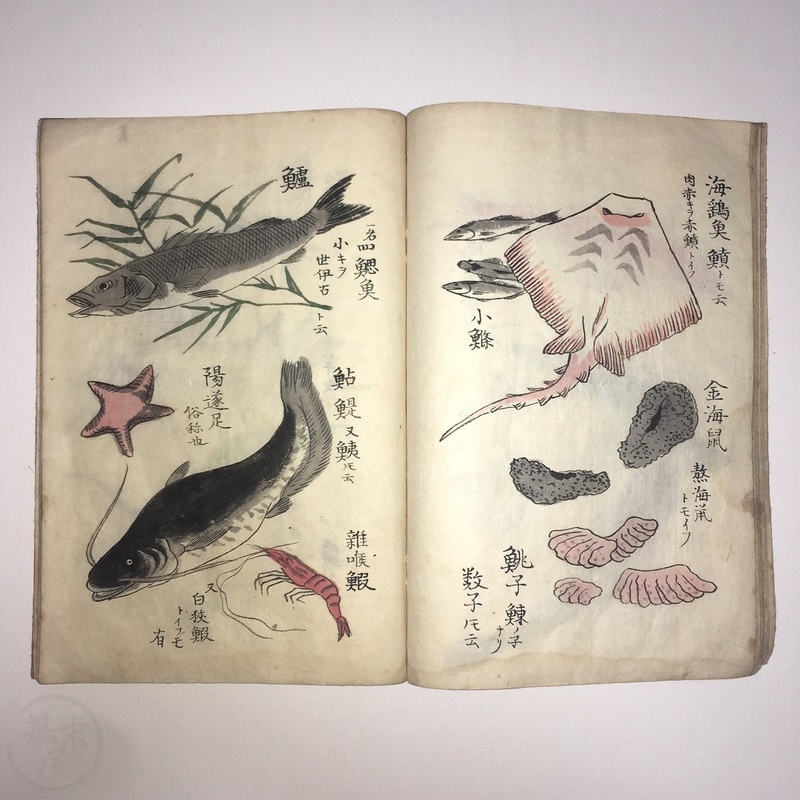 海鷂魚 鱝トモ云
肉赤キヲ赤鱝トイフ
小鰷
金海鼠
熬海鼠
トモイフ
鮡子 鰊ノ子ナリ
数子トモ云
鱸
一名四鰓魚
小キヲ
世伊古ト云
陽遂足
俗称也
鮎 鯷 又鮧トモ云
雜喉鰕
又
白狹鰕
トイフモ
有